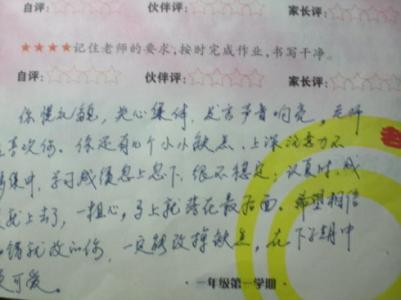 自评: 伙伴评: 家长评:
★★★★记住老师的要求,按时完成作业,书写干净。
自评: 伙伴评: 家长评:
你懂礼貌,关心集体,发言声音响亮。老师
喜欢你。你还有个小小缺点,上课注意力不
集中,学习成绩忽上忽下,很不稳定;认真时,成
就上去了,一粗心,马上就落在最后面。希望相信
错就改的你,一定能改掉缺点,在下学期中
更可爱。
·一年级第一学期·